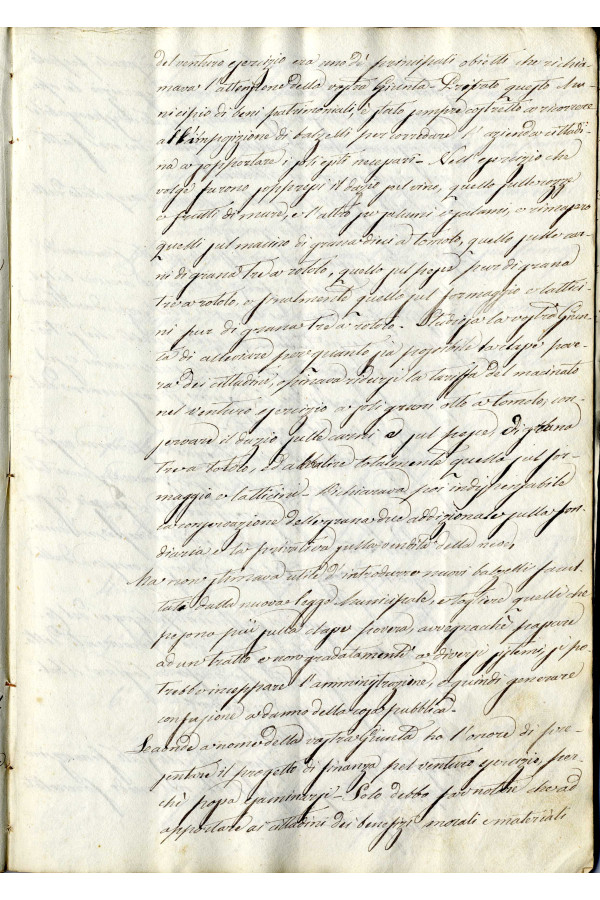 del venturo esercizio era uno de' principali obietti che richia-
mava l'attenzione della vostra Giunta. Privato questo Mu-
nicipio di beni patrimoniali, è stato sempre costretto a ricorrere
all'imposizione di balzelli per corredare l'azienda cittadi-
na a sopportare i soli esiti necessari. Nell'esercizio che
volge furono soppressi il dazio sul vino, quello sulle
o frutti di mare, e l'altro su salumi, e rimasero
quelli sul macino di grana dieci a tomolo, quello sulle car-
ni di grana tre a rotolo, quello sul pesce pur di grana
tre a rotolo, e finalmente quello sul formaggio e lattici-
ni pur di grana tre a rotolo. Studiosa la vostra Giun-
ta di alleviare per quanto sia possibile la classe pove-
ra dei cittadini, opinava ridursi la tariffa del macinato
nel venturo esercizio a soli grani otto a tomolo, con-
servare il dazio sulle carni e sul pesce di grana
tre a rotolo, ed abolire totalmente quello sul for-
maggio e latticini. Dichiarava poi indispensabile
la conservazione delle grana due addizionale sulla fon-
diaria e la privativa sulla vendita della neve.
Ma non stimava utile d'introdurre nuovi balzelli facul-
tati dalla nuova legge Municipale, e togliere quelli che
pesono più sulla classe povera, avvegnachè passare
ad un tratto e non gradatamente a diversi sistemi, si po-
trebbe inceppare l'amministrazione, e quindi generare
confusione a danno della cosa pubblica.
Laonde a nome della vostra Giunta ho l'onore di pre-
sentare il progetto di finanza pel venturo esercizio, per-
chè possa esaminarsi. Solo debbo far notare che ad
apportare ai cittadini dei benefizi morali e materiali